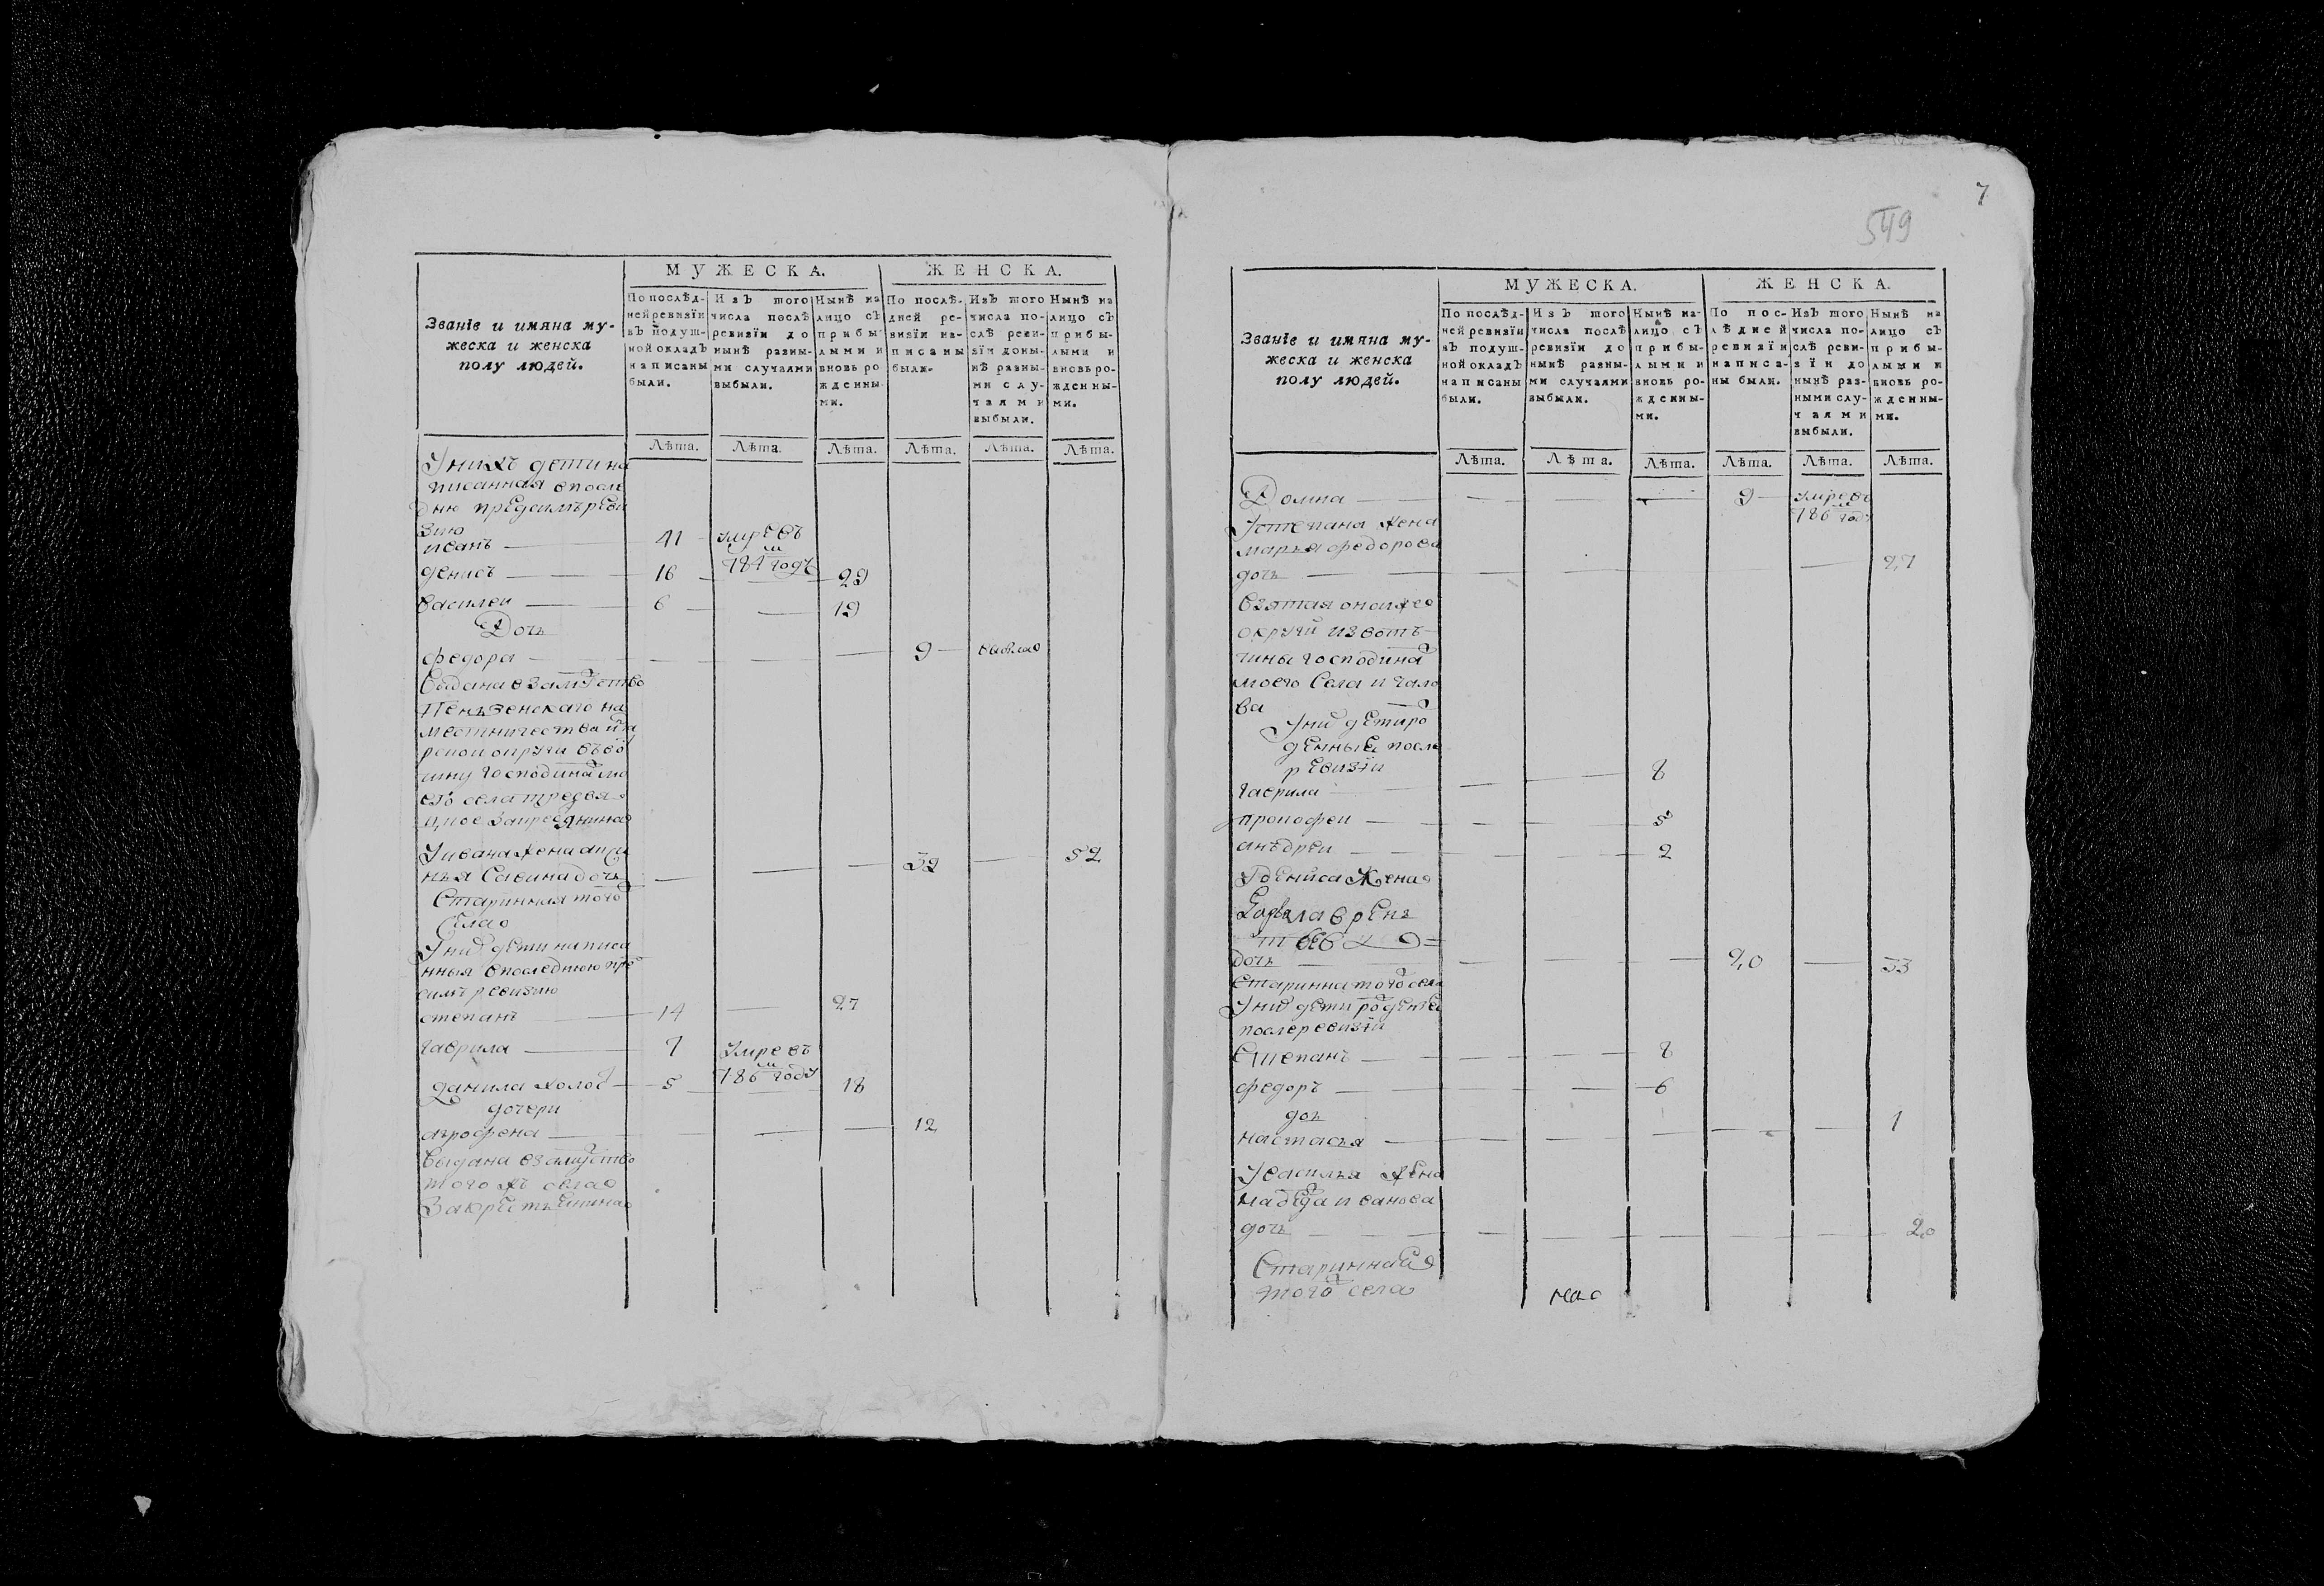 МУЖЕСКА. ЖЕНСКА.
Званіе и имяна му-
жеска и женска
полу людей.
По послѣд-
ней ревизіи
въ подуш-
ной окладъ
написаны
были.
Изъ того
числа послѣ
ревизіи до
нынѣ разны-
ми случаями
выбыли.
Нынѣ на
лицо съ
прибы-
лыми и
вновь ро
жденны
ми.
По послѣ-
дней ре-
визіи на-
писаны
были.
Изъ того
числа по-
слѣ реви-
зіи доны-
нѣ разны-
ми слу-
чаями
выбыли.
Нынѣ на
лицо съ
прибы-
лыми и
вновь ро-
жденны-
ми.
Лѣта. Лѣта. Лѣта. Лѣта. Лѣта. Лѣта.
У нихъ дети на
писанная впосл
дню предсимъ реви
зию
иванъ 41 умре въ
781 годѣ
денисъ 16 29
василеи 6 19
Дочь
федора 9 выбыла
выдана взамужство
Пензенскаго на
местничества
рской округи въво
чину господина мо
его села
за крестьянина
У ивана жена
нья Савина дочь 39 52
Старинная того
села
У них дети написа
нныя впоследнюю пре
симъ ревизию
степанъ 14 27
гаврила 7 умре въ
786 году
данила холос 5 18
дочери
агрофена 12
выдана взамужство
того жъ села
За крестьянина
7
549
МУЖЕСКА. ЖЕНСКА.
Званіе и имяна му-
жеска и женска
полу людей.
По послѣд-
ней ревизіи
въ подуш-
ной окладъ
написаны
были.
Изъ того
числа послѣ
ревизіи до
нынѣ разны-
ми случаями
выбыли.
Нынѣ на-
лицо съ
прибы-
лыми и
вновь ро-
жденны-
ми.
По пос-
лѣдней
ревизіи
написа-
ны были.
Изъ того
числа по-
слѣ реви-
зіи до
нынѣ раз-
ными слу-
чаями
выбыли.
Нынѣ на
лицо съ
прибы-
лыми и
вновь ро-
жденны-
ми.
Лѣта. Лѣта. Лѣта. Лѣта. Лѣта. Лѣта.
Домна 9 умре въ
786 году
У степана жена
марья федорова
дочь 27
Взятая оной же
округи из вот-
чины господина
моего Села
ва
У них дети ро
денныя после
ревизіи
гаврила 8
прокофеи 5
андреи 2
У дениса жена
дочь 20 33
старинна того села
У них дети роденые
после ревизіи
Степанъ 8
федоръ 6
доч
настасья 1
У василья жена
надежда иванова
дочь 20
Стариннаа
того села